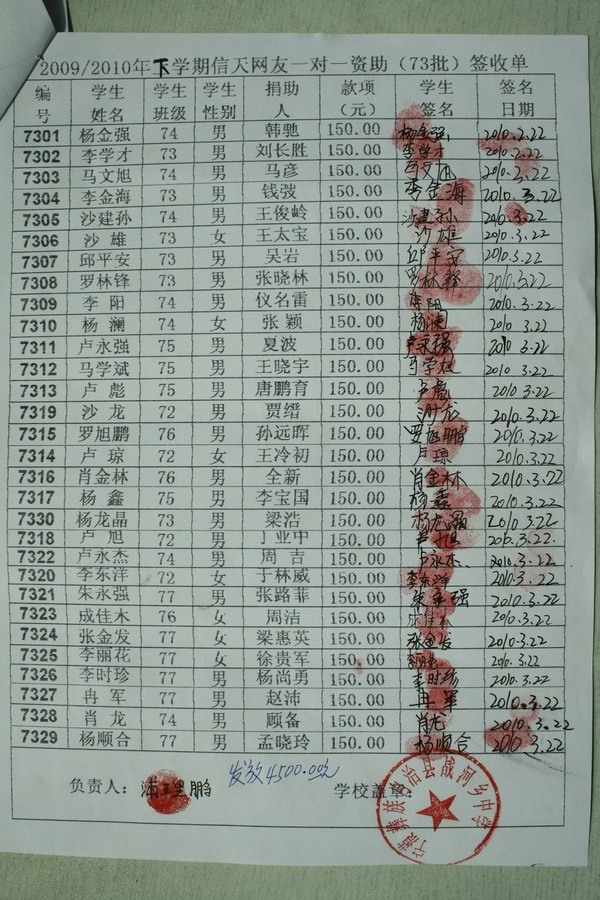 2009/2010年下学期信天网友一对一资助（73批）签收单
编号 学生姓名 学生班级 学生性别 捐助人 款项（元） 学生签名 签名日期
7301 杨金强 74 男 韩驰 150.00 杨金强 2010.3.22
7302 李学才 73 男 刘长胜 150.00 李学才 2010.3.22
7303 马文旭 74 男 马彦 150.00 马文旭 2010.3.22
7304 李金海 73 男 钱弢 150.00 李金海 2010.3.22
7305 沙建孙 74 男 王俊岭 150.00 沙建孙 2010.3.22
7306 沙雄 73 女 王太宝 150.00 沙雄 2010.3.22
7307 邱平安 73 男 吴岩 150.00 邱平安 2010.3.22
7308 罗林锋 73 男 张晓林 150.00 罗林锋 2010.3.22
7309 李阳 74 男 仪名雷 150.00 李阳 2010.3.22
7310 杨澜 74 女 张颖 150.00 杨澜 2010 3.22
7311 卢永强 75 男 夏波 150.00 卢永强 2010 3.22
7312 马学斌 75 男 王晓宇 150.00 马学斌 2010 3.22
7313 卢彪 75 男 唐鹏育 150.00 卢彪 2010 3.22
7319 沙龙 72 男 贾缙 150.00 沙龙 2010.3.22
7315 罗旭鹏 76 男 孙远晖 150.00 罗旭鹏 2010.3.22
7314 卢琼 72 女 王冷初 150.00 卢琼 2010.3.22
7316 肖金林 76 男 全新 150.00 肖金林 2010.3.22
7317 杨鑫 75 男 李宝国 150.00 杨鑫 2010.3.22
7330 杨龙晶 73 男 梁浩 150.00 杨龙晶 2010.3.22
7318 卢旭 72 男 丁业中 150.00 卢旭 2010.3.22.
7322 卢永杰 74 男 周吉 150.00 卢永杰. 2010.3.22
7320 李东洋 72 女 于林威 150.00 李东洋 2010.3.22
7321 朱永强 77 男 张路菲 150.00 朱永强 2010.3.22
7323 成佳木 76 女 周洁 150.00 成佳木 2010.3.22
7324 张金发 77 女 梁惠英 150.00 张金发 2010.3.22
7325 李丽花 77 女 徐贵军 150.00 李丽花 2010.3.22
7326 李时珍 77 男 杨尚勇 150.00 李时珍 2010.3.22
7327 冉军 77 男 赵沛 150.00 冉军 2010.3.22
7328 肖龙 74 男 顾备 150.00 肖龙 2010.3.22
7329 杨顺合 77 男 孟晓玲 150.00 杨顺合 2010.3.22
负责人： 鹏 发放4500.00元 学校盖章：
宁蒗彝族自治县战河乡中学